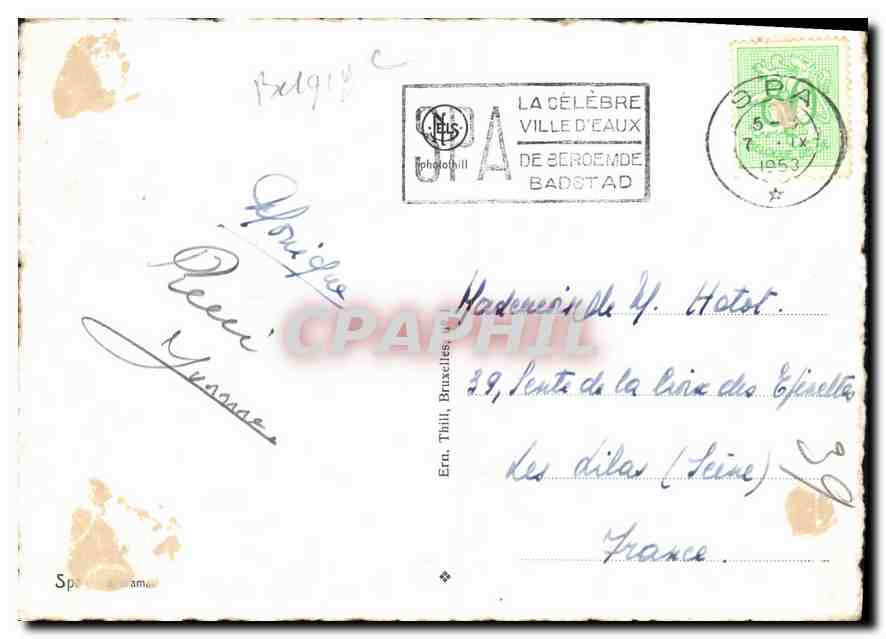 Belgique
SPA
NELS
photothill
LA CÉLÈBRE
VILLE D'EAUX
DE BEROEMDE
BADSTAD
SPA
5-
7 - IX
1953
Monique
Remi
Yvonne
CPAPHIL
Ern. Thill, Bruxelles,
Mademoiselle M. Hotot.
39, Sente de la Croix des
Les Lilas (Seine)
39
France.
Spa